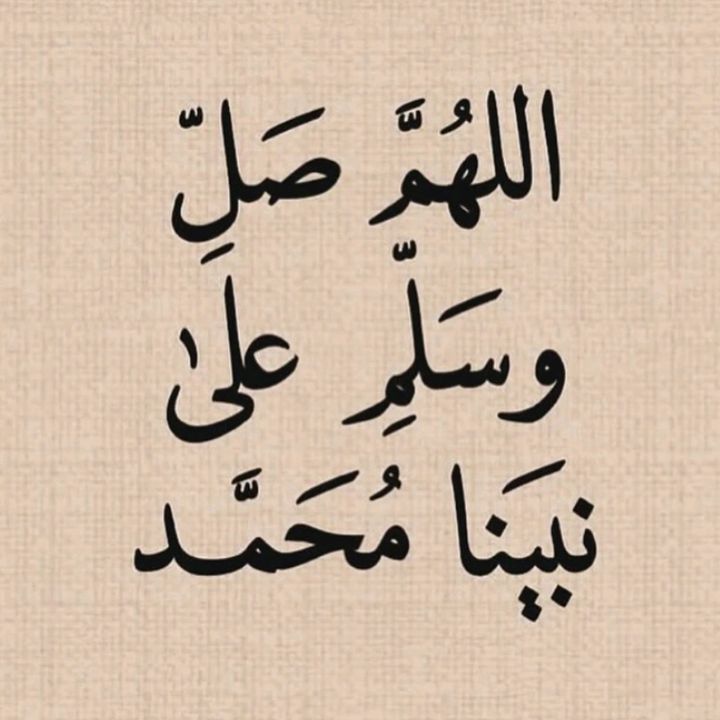 اللهُمَّ صَلِّ
وسَلِّمِ علىٰ
نبينَا مُحَمَّد